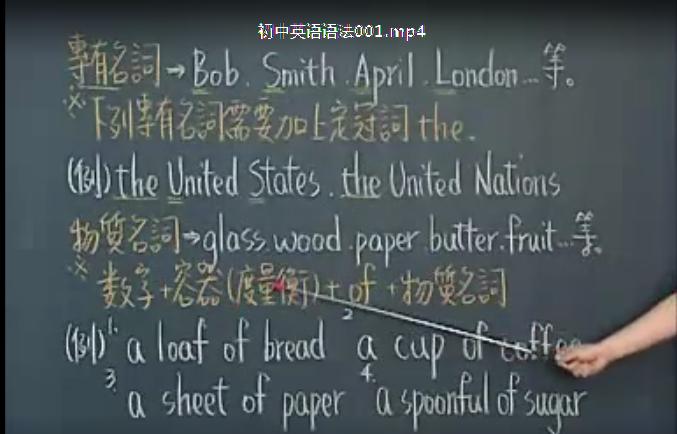 初中英语语法001.mp4
專有名詞→Bob.Smith.April.London...等。
※下列專有名詞需要加上定冠詞the.
(例)the United States.the United Nations
物質名詞→glass.wood.paper.butter.fruit...等。
※数字+容器(度量衡)+of+物質名詞
(例)1.a loaf of bread 2.a cup of coffee
3.a sheet of paper 4.a spoonful of sugar